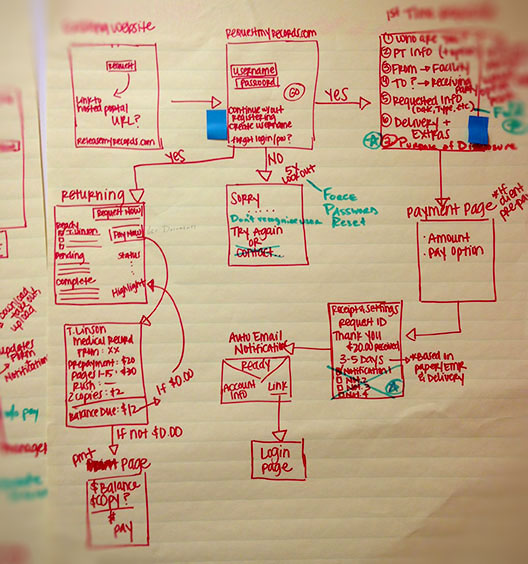 WEBSITE
REQUEST
Link to
hosted portal
URL?
releasemyrecords.com
REQUESTMYRECORDS.COM
USERNAME
PASSWORD
GO
Continue w/out
registering
Create username
forgot login/pw?
YES
1st Time
① WHO are you?
② PT Info
③ From → Facility
④ TO? → Receiving
Party
⑤ Requested Info
(Date, Type, etc)
⑥ Delivery +
EXTRAS
Purpose of Disclosure
YES
NO
5x
LOCKOUT
SORRY
.....
Don't recognize user
TRY Again
OR
Contact...
FORCE
PASSWORD
RESET
Returning
Request Now
Ready
T. Linson
Pay Now
Pending
Status
Complete
Highlight
PAYMENT PAGE
* If
client
prepay
· Amount
· Pay Option
T. Linson
Medical Record
FROM: XX
Prepayment: $20
Pages 1-15: $30
Rush: —
2 copies: $2
Balance Due: $12
If $0.00
If not $0.00
Receipt & Settings
Request ID
Thank you
$20.00 received
3-5 Days
* Based on
paper/EMR
& Delivery
Notification 1
Not. 2
Not. 3
Not. 4
Auto Email
Notification
Ready
Account
Info
Link
Login
page
pmt
PAGE
$ Balance
$ COPY?
#
PAY
download
upload
updates
Notification
pay
manager